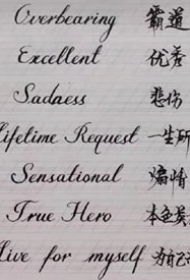 Overbearing 霸道
Excellent 优秀
Sadness 悲伤
Lifetime Request 一生所
Sensational 煽情
True Hero 本色英
live for myself 为自己